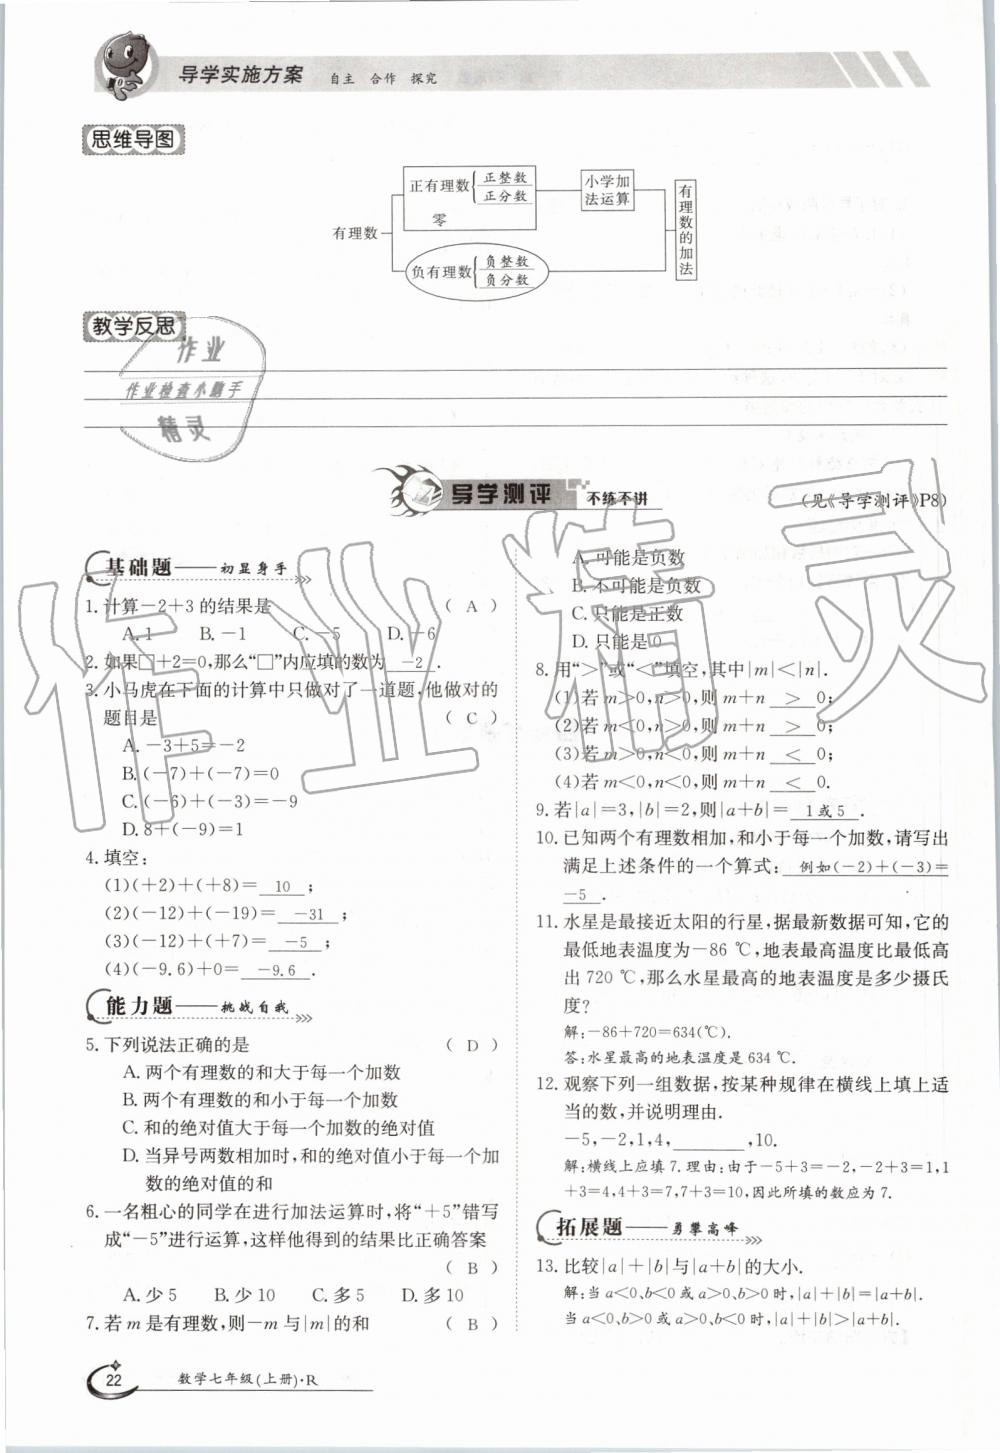 导学实施方案 自主 合作 探究
思维导图
有理数
正有理数{正整数 正分数
零
负有理数{负整数 负分数
小学加法运算
有理数的加法
教学反思
作业
作业检查小助手
精灵
导学测评 不练不讲 (见《导学测评》P8)
基础题——初显身手
1.计算-2+3的结果是 ( A )
A.1 B.-1 C.-5 D.-6
2.如果□+2=0,那么“□”内应填的数为 -2 .
3.小马虎在下面的计算中只做对了一道题,他做对的
题目是 ( C )
A.-3+5=-2
B.(-7)+(-7)=0
C.(-6)+(-3)=-9
D.8+(-9)=1
4.填空:
(1)(+2)+(+8)= 10 ;
(2)(-12)+(-19)= -31 ;
(3)(-12)+(+7)= -5 ;
(4)(-9.6)+0= -9.6 .
能力题——挑战自我
5.下列说法正确的是 ( D )
A.两个有理数的和大于每一个加数
B.两个有理数的和小于每一个加数
C.和的绝对值大于每一个加数的绝对值
D.当异号两数相加时,和的绝对值小于每一个加
数的绝对值的和
6.一名粗心的同学在进行加法运算时,将“+5”错写
成“-5”进行运算,这样他得到的结果比正确答案
( B )
A.少5 B.少10 C.多5 D.多10
7.若m是有理数,则-m与|m|的和 ( B )
A.可能是负数
B.不可能是负数
C.只能是正数
D.只能是0
8.用“>”或“<”填空,其中|m|<|n|.
(1)若m>0,n>0,则m+n > 0;
(2)若m<0,n>0,则m+n > 0;
(3)若m>0,n<0,则m+n < 0;
(4)若m<0,n<0,则m+n < 0.
9.若|a|=3,|b|=2,则|a+b|= 1或5 .
10.已知两个有理数相加,和小于每一个加数,请写出
满足上述条件的一个算式: 例如(-2)+(-3)=
-5 .
11.水星是最接近太阳的行星,据最新数据可知,它的
最低地表温度为-86 ℃,地表最高温度比最低高
出720 ℃,那么水星最高的地表温度是多少摄氏
度?
解:-86+720=634(℃).
答:水星最高的地表温度是634 ℃.
12.观察下列一组数据,按某种规律在横线上填上适
当的数,并说明理由.
-5,-2,1,4,______,10.
解:横线上应填7.理由:由于-5+3=-2,-2+3=1,1
+3=4,4+3=7,7+3=10,因此所填的数应为7.
拓展题——勇攀高峰
13.比较|a|+|b|与|a+b|的大小.
解:当a<0、b<0或a>0、b>0时,|a|+|b|=|a+b|.
当a<0、b>0或a>0、b<0时,|a|+|b|>|a+b|.
22 数学七年级(上册)·R
作业精灵